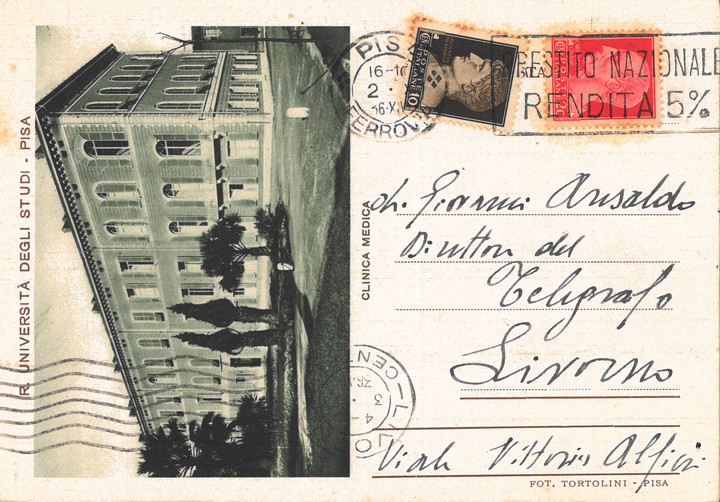 R. UNIVERSITÀ DEGLI STUDI - PISA
CLINICA MEDICA
PISA
16-
2 ·
36-XIV
FERROVIA
POSTE
ITALIANE
10
PRESTITO NAZIONALE
RENDITA 5%
Giovanni Ansaldo
Direttore del
Telegrafo
Livorno
Viale Vittorio Alfieri
CEN
3
36
4-
FOT. TORTOLINI - PISA